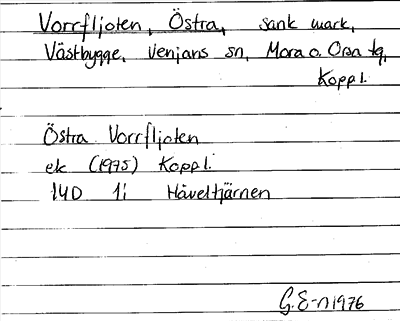 Vorrfljoten, Östra, sank mark,
Västbygge, Venjans sn, Mora o. Orsa tg,
Koppl.
Östra Vorrfljoten
ek (1975) Koppl.
14D 1i Håveltjärnen
G.E-n 1976